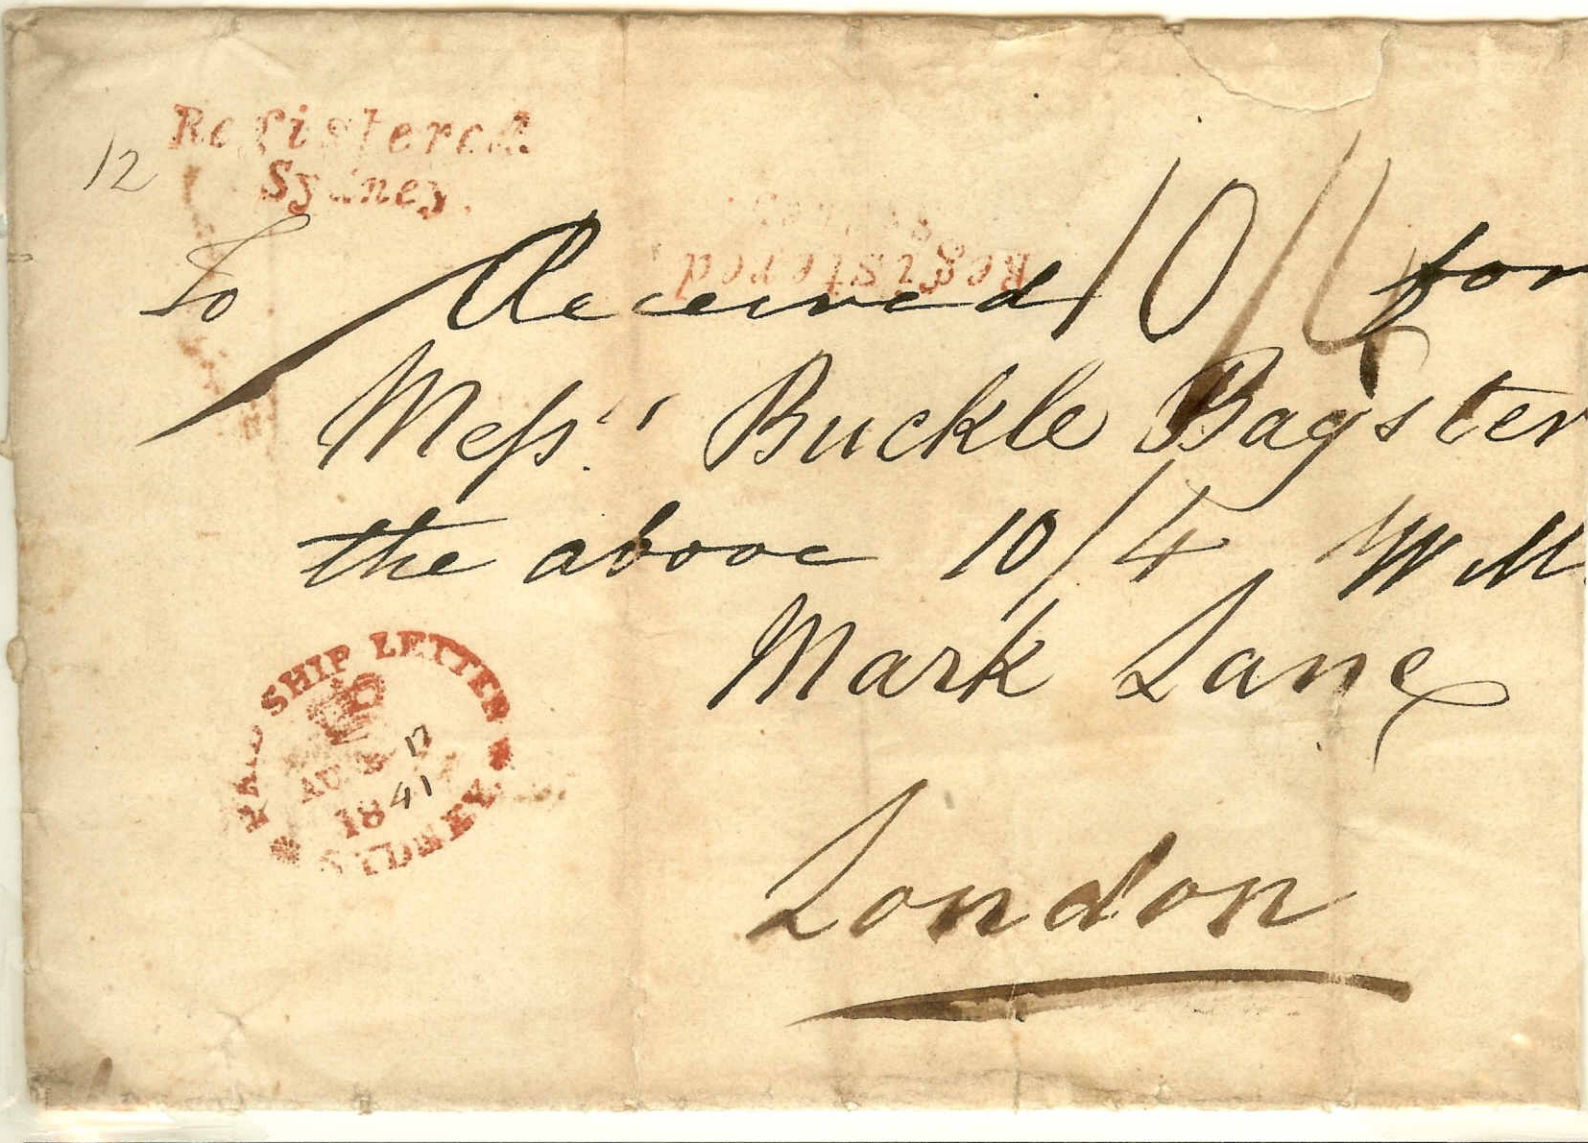 Registered
Sydney.
12
Registered
Sydney
To Received 10/4 for
Mess.rs Buckle Bagster
the above 10/4 W M
Mark Lane
London
PAID SHIP LETTER
AU 17
1841
SYDNEY